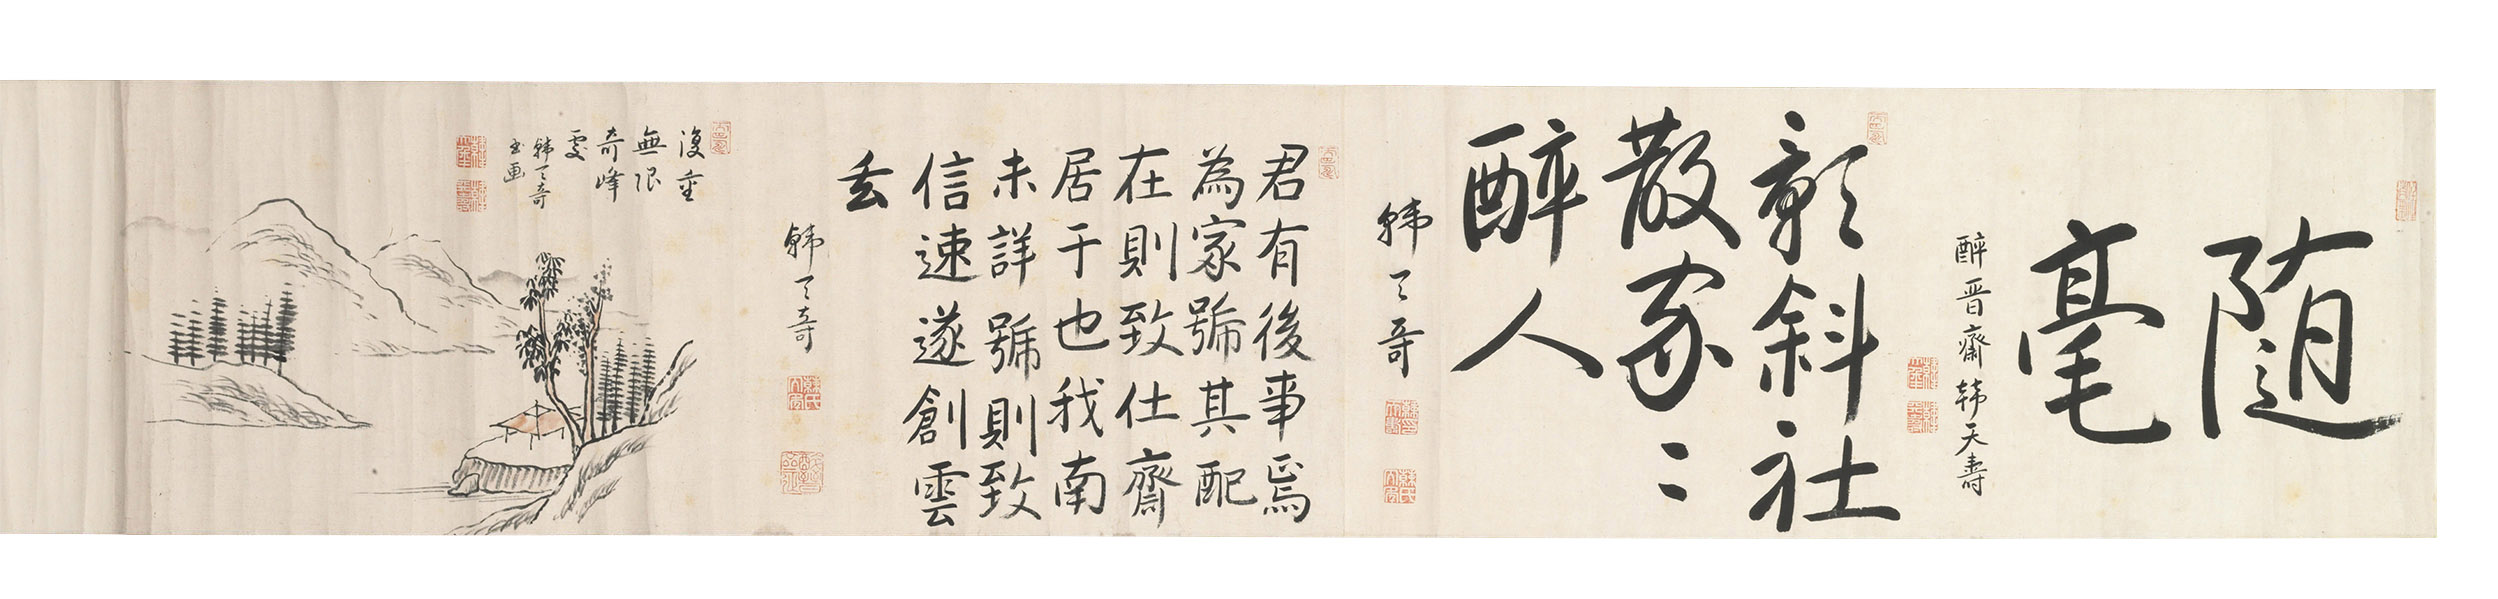 随
毫
醉晋齋韓天寿
影斜社
散家〻
醉人
韓天寿
君有後事焉
為家號其配
在則致仕齋
居于也我南
未詳號則致
信速遂創雲
玄
韓天寿
復重
無限
奇峰
處
韓天寿
书画